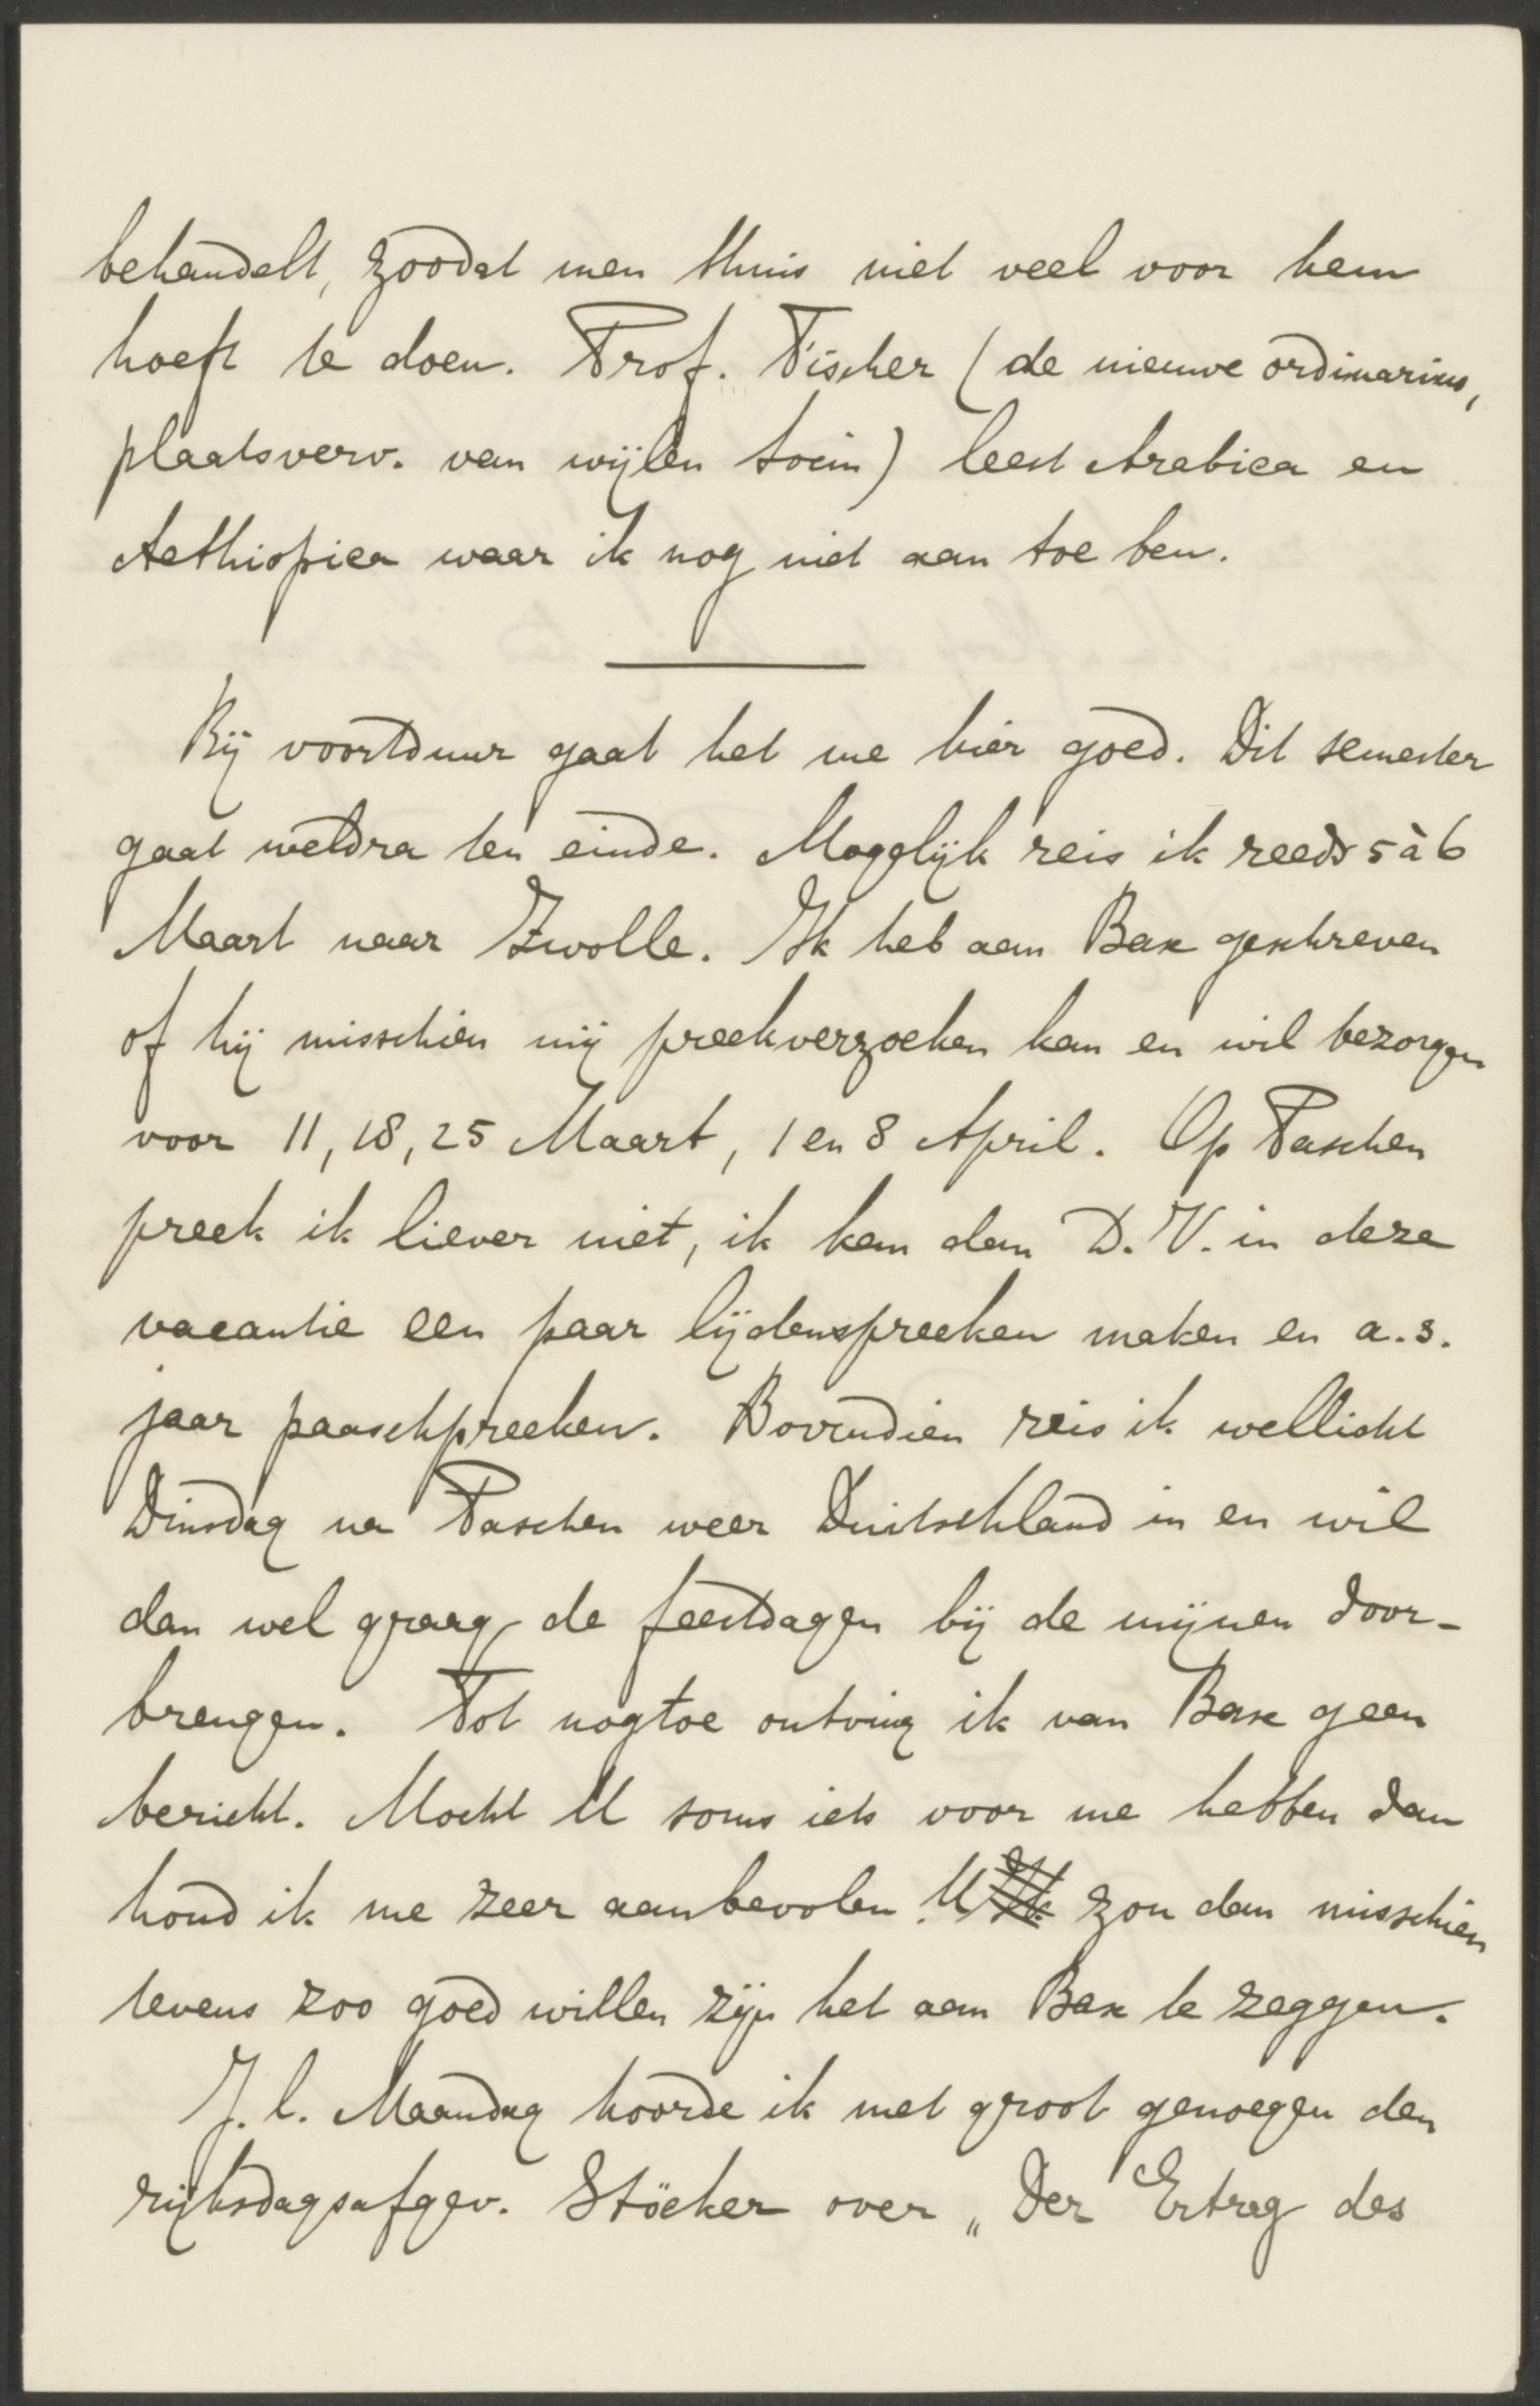 behandelt, zoodat men thuis niet veel voor hem
hoeft te doen. Prof. Fischer (de nieuwe ordinarius,
plaatsverv. van wijlen Socin) leest Arabica en
Aethiopica waar ik nog niet aan toe ben.
Bij voortduur gaat het me hier goed. Dit semester
gaat weldra ten einde. Mogelijk reis ik reeds 5 à 6
Maart naar Zwolle. Ik heb aan Bax geschreven
of hij misschien mij preekverzoeken kan en wil bezorgen
voor 11, 18, 25 Maart, 1 en 8 April. Op Paschen
preek ik liever niet, ik kan dan D.V. in deze
vacantie een paar lijdenspreeken maken en a.s.
jaar paaschpreeken. Bovendien reis ik wellicht
Dinsdag na Paschen weer Duitschland in en wil
dan wel graag de feestdagen bij de mijnen door-
brengen. Tot nogtoe ontving ik van Bax geen
bericht. Mocht U soms iets voor me hebben dan
houd ik me zeer aanbevolen. U zou dan misschien
tevens zoo goed willen zijn het aan Bax te zeggen.
J.l. Maandag hoorde ik met groot genoegen den
rijksdagsafgev. Stöcker over „Der Ertrag des